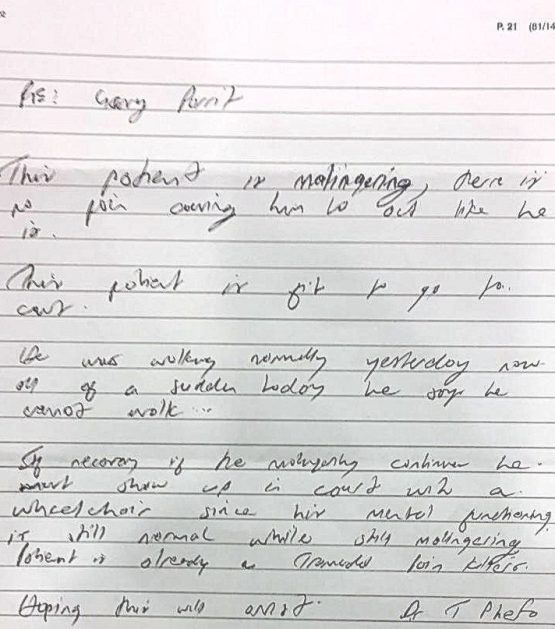 P. 21 (81/14
RE: Gary Porrit
This patient is malingering, there is
no pain causing him to act like he
is.
This patient is fit to go to
court.
He was walking normally yesterday now
all of a sudden today he says he
cannot walk ...
If necessary if he malingering continues he
must show up in court with a
wheelchair since his mental functioning
is still normal while still malingering
Patient is already on Tramadol Pain killers.
Hoping this will assist. Dr T Phefo